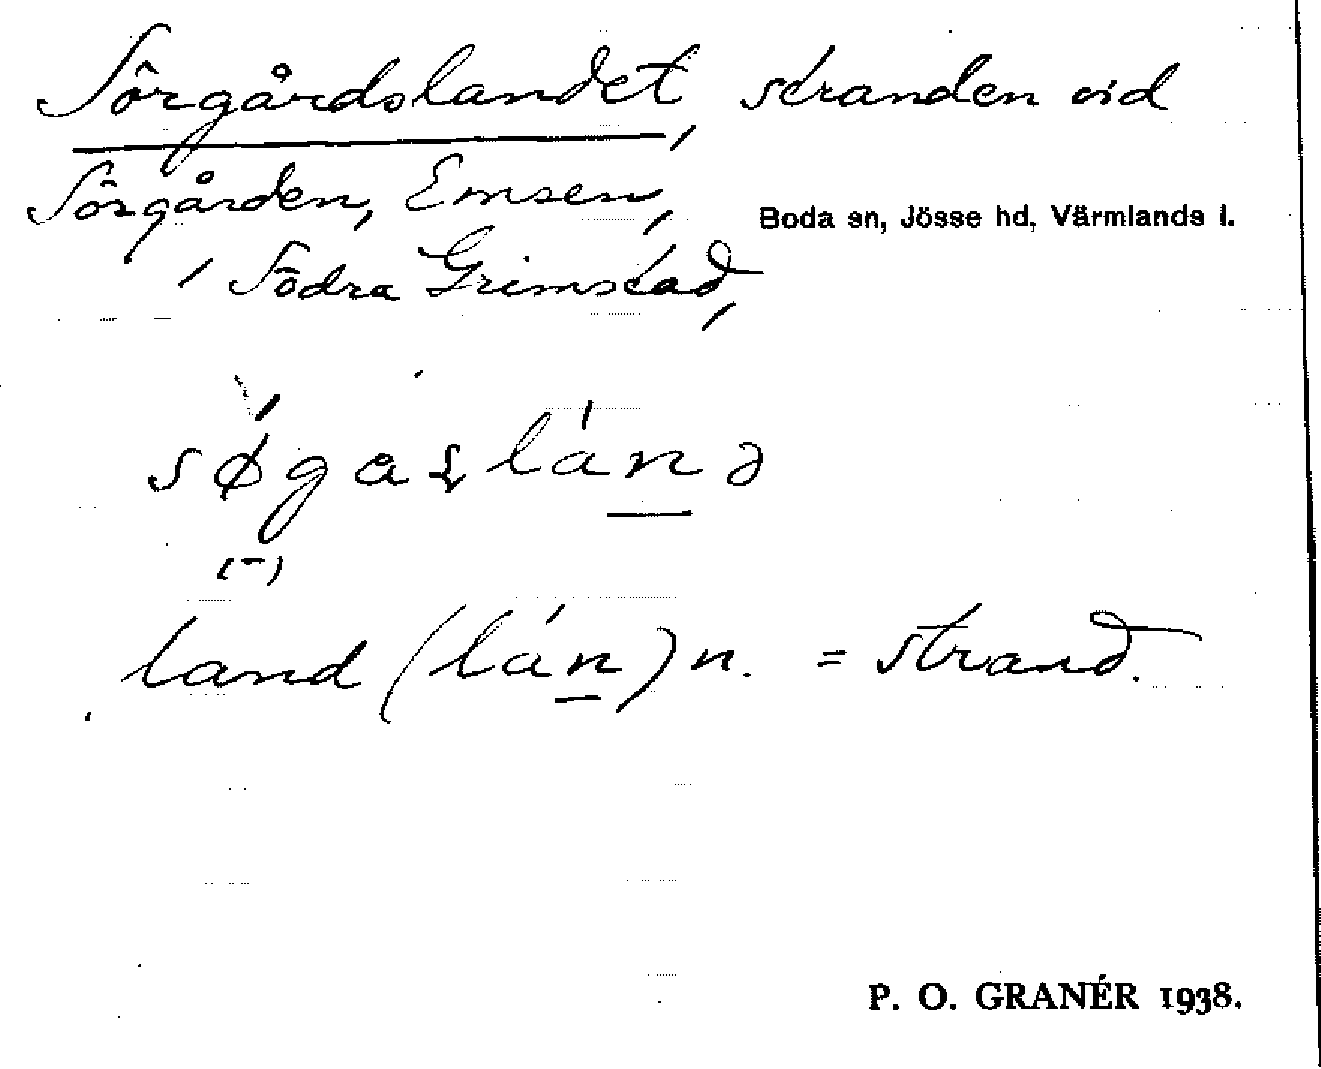 Sörgårdslandet, stranden vid
Sörgården, Emsen,
Boda sn, Jösse hd, Värmlands l.
i Södra Grimstad,
land (lán) n. = strand.
P. O. GRANÉR 1938.